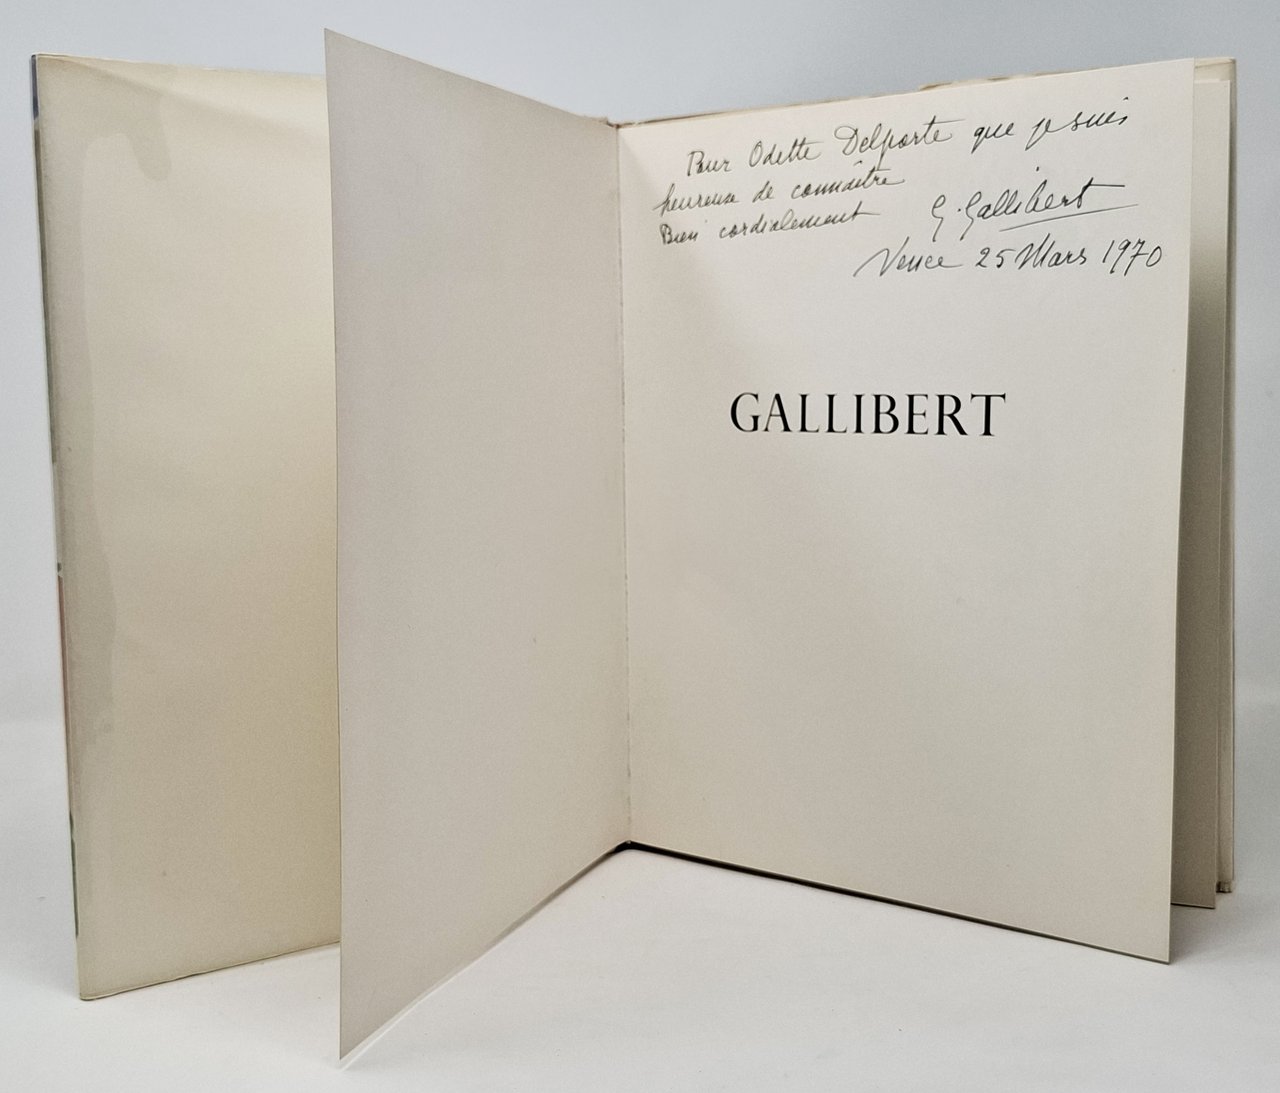 Pour Odette Delporte que je suis
heureuse de connaître
Bien cordialement G. Gallibert
Vence 25 Mars 1970
GALLIBERT